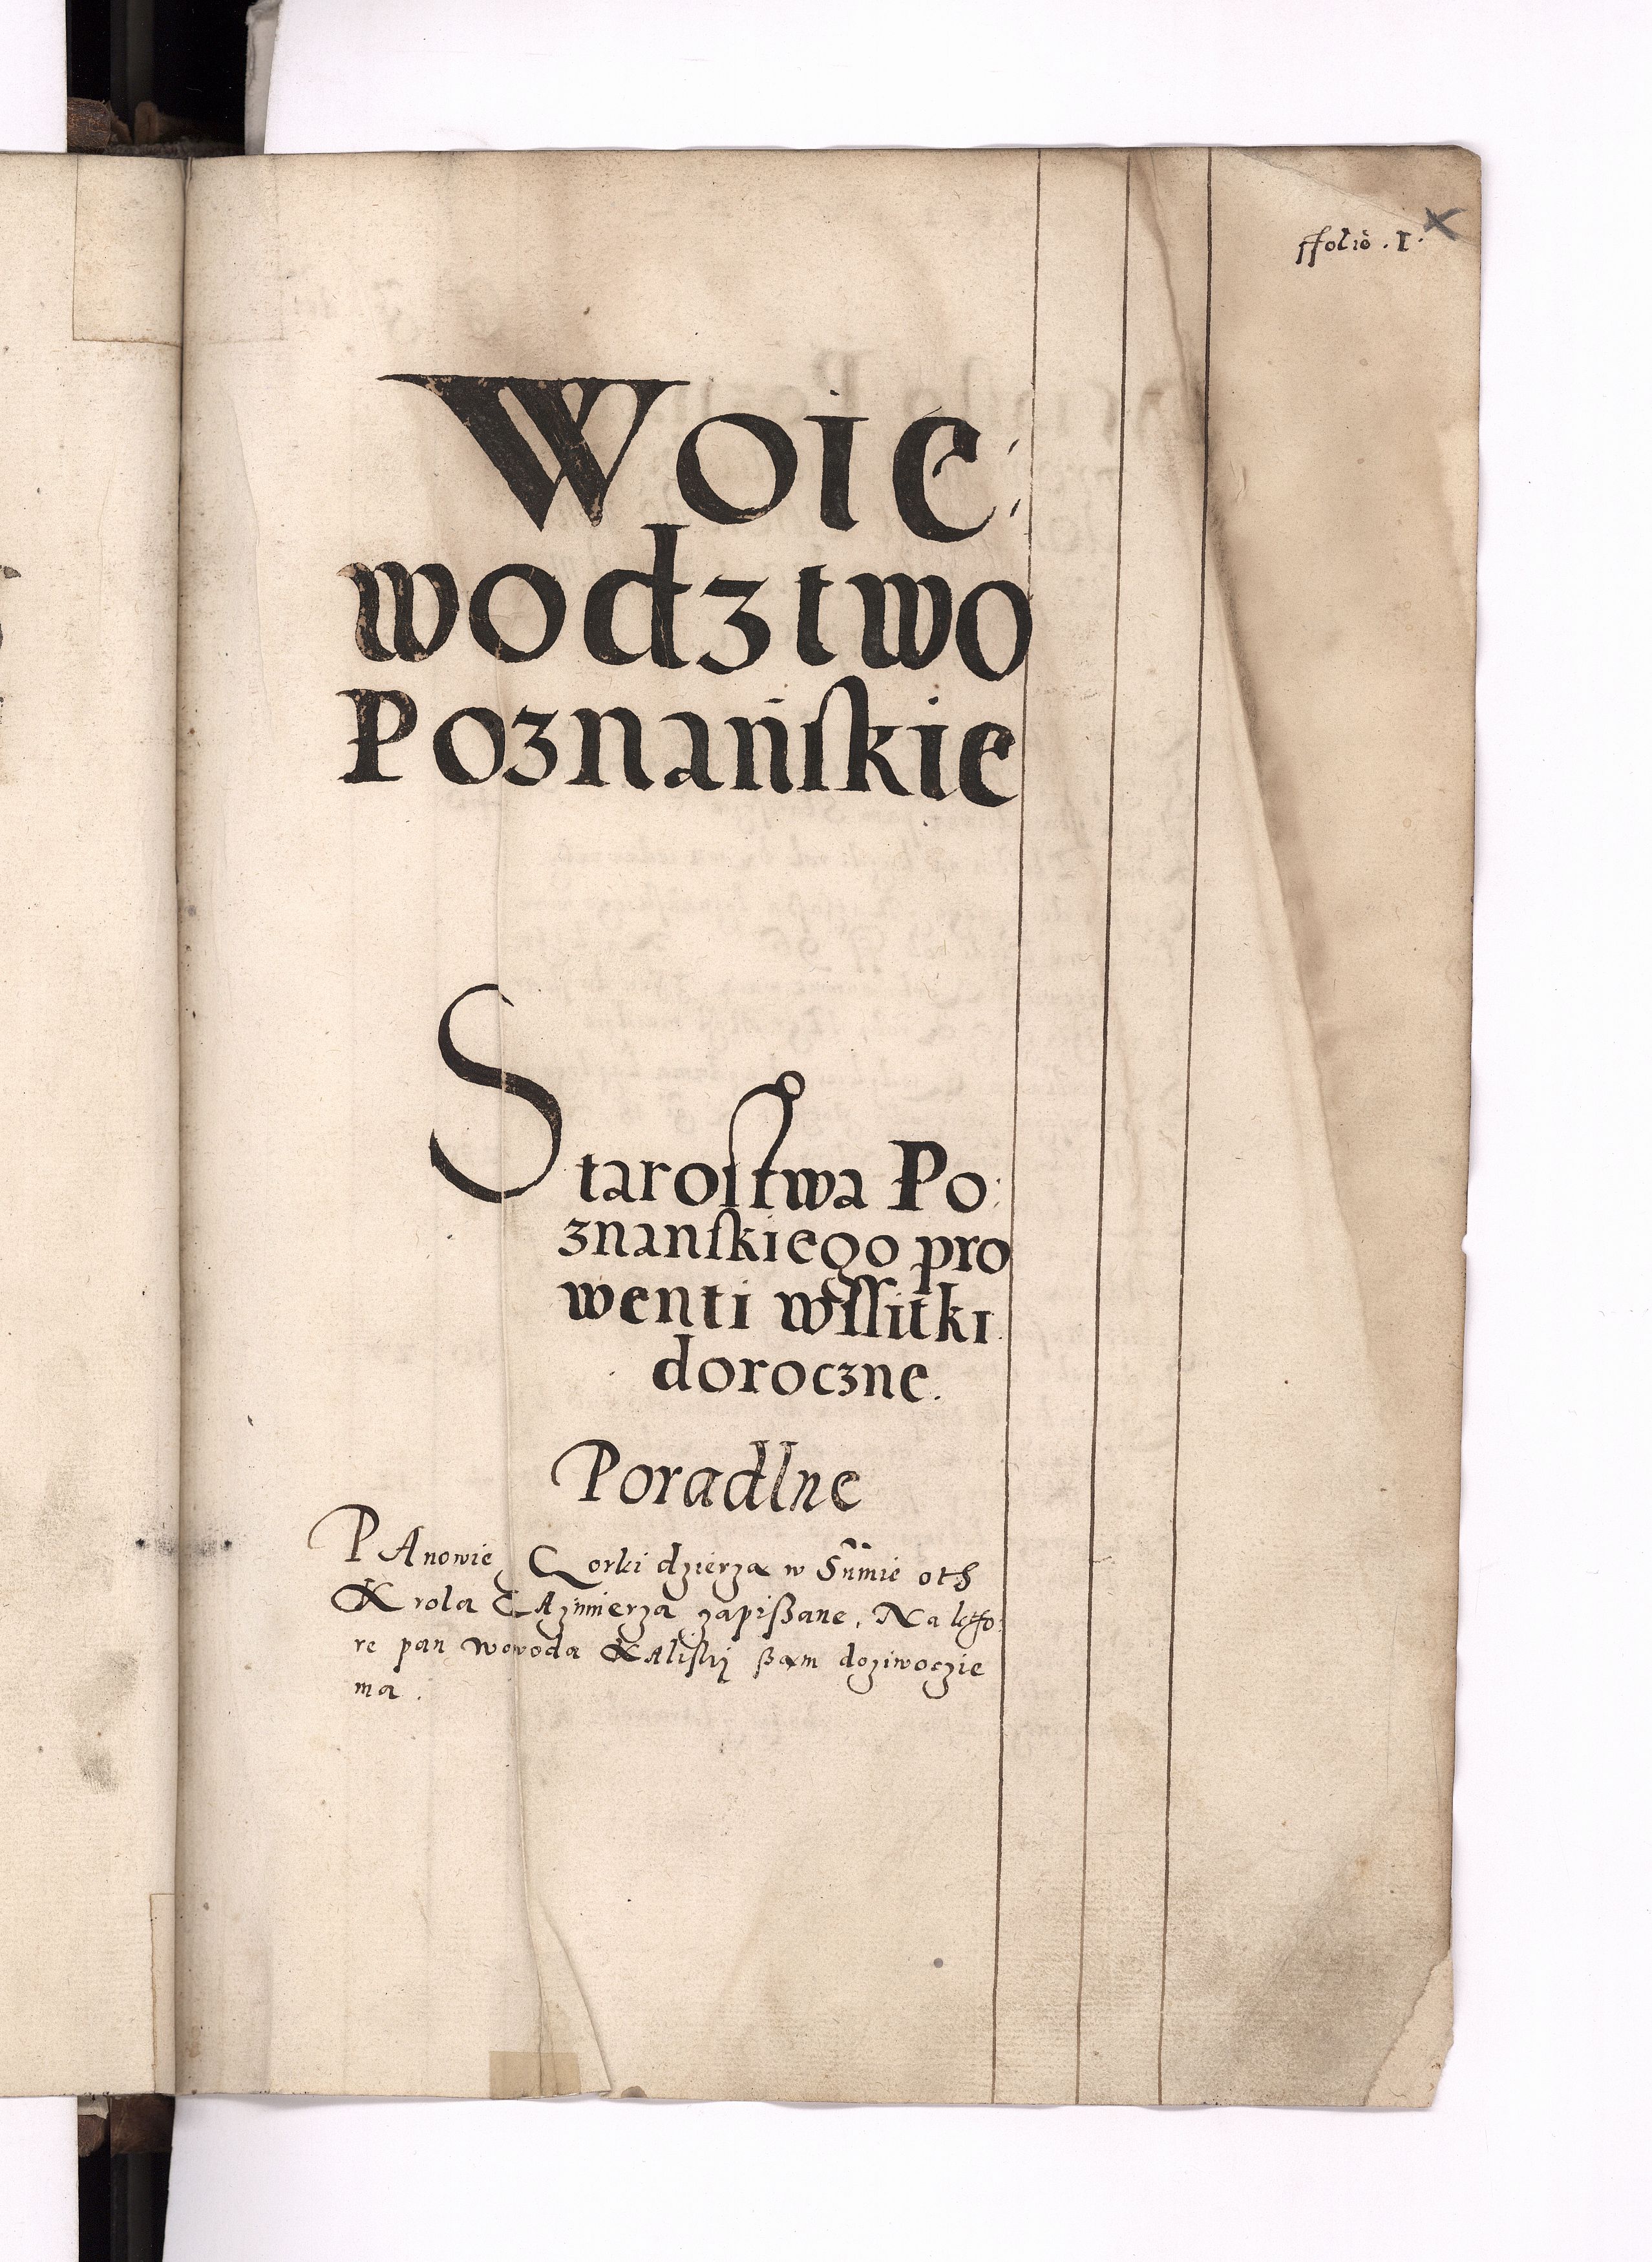 ffolio . I .
Woie
wodztwo
Poznańſkie
Staroſtwa Po:
znanſkiego pro
wenti wſſitki
doroczne.
Poradlne
PAnowie Gorki dzierza w Summie oth
Krola CAzimierza zapißane, Na ktho:
re pan wowoda KAliſkÿ ßam doziwoczie
ma .